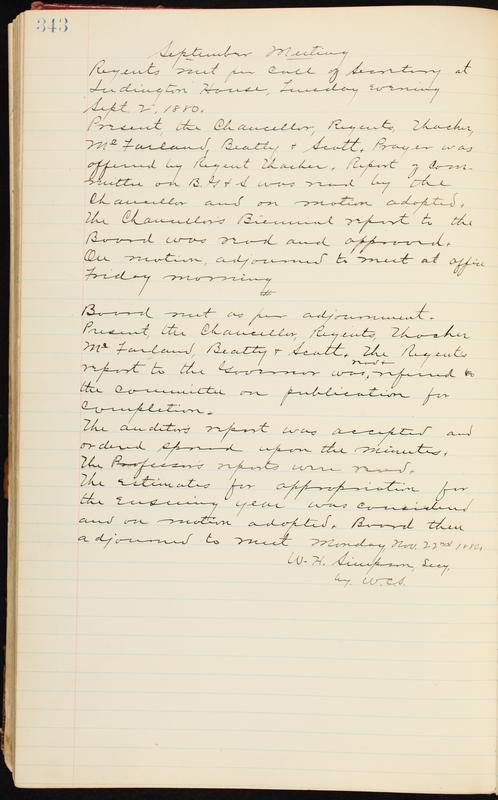 343
September Meeting
Regents met per call of Secretary at
Ludington House, Tuesday evening
Sept 2, 1880.
Present, the Chancellor, Regents, Thacher,
McFarland, Beatty & Scott. Prayer was
offered by Regent Thacher. Report of Com-
mittee on B. G & S was read by the
Chancellor and on motion adopted.
The Chancellor's Biennial report to the
Board was read and approved.
On motion, adjourned to meet at office
Friday morning
#
Board met as per adjournment.
Present, the Chancellor, Regents, Thacher
McFarland, Beatty & Scott. The Regents
report to the Governor was, read & referred to
the committee on publication for
completion.
The auditors report was accepted and
ordered spread upon the minutes.
The Professors reports were read.
The Estimates for appropriation for
the ensuing year was considered
and on motion adopted. Board then
adjourned to meet Monday Nov. 22nd 1880.
W. H. Simpson, Secy.
by W.C.S.